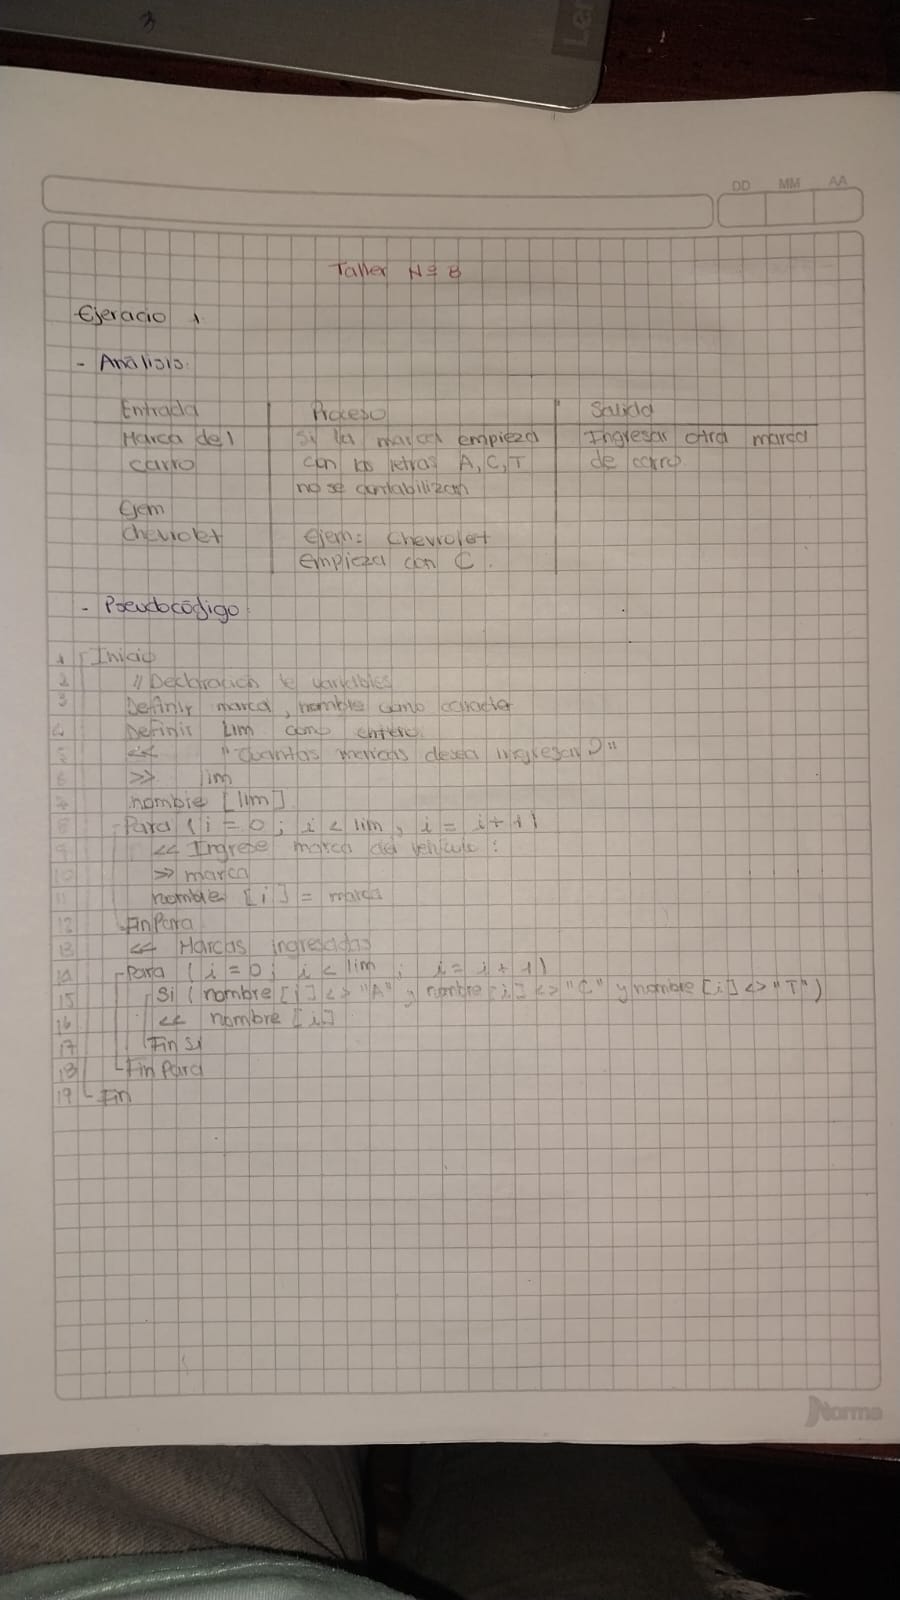 Len
DD MM AA
Taller Nº 8
Ejercicio 1
- Análisis:
Entrada Proceso Salida
Marca del Si la marca empieza Ingresar otra marca
carro con las letras A, C, T de carro
no se contabilizan
Ejem
Chevrolet Ejem: Chevrolet
empieza con C.
- Pseudocódigo:
1 Inicio
2 // Declaración de variables
3 Definir marca, nombre como caracter
4 Definir Lim como entero
5 << "Cuantas marcas desea ingresar?"
6 >> lim
7 nombre [lim]
8 Para (i = 0; i < lim, i = i + 1)
9 << Ingrese marca del vehículo :
10 >> marca
11 nombre [i] = marca
12 FinPara
13 << Marcas ingresadas
14 Para (i = 0; i < lim ; i = i + 1)
15 Si (nombre [i] <> "A" y nombre [i] <> "C" y nombre [i] <> "T")
16 << nombre [i]
17 Fin si
18 Fin Para
19 Fin
Norma